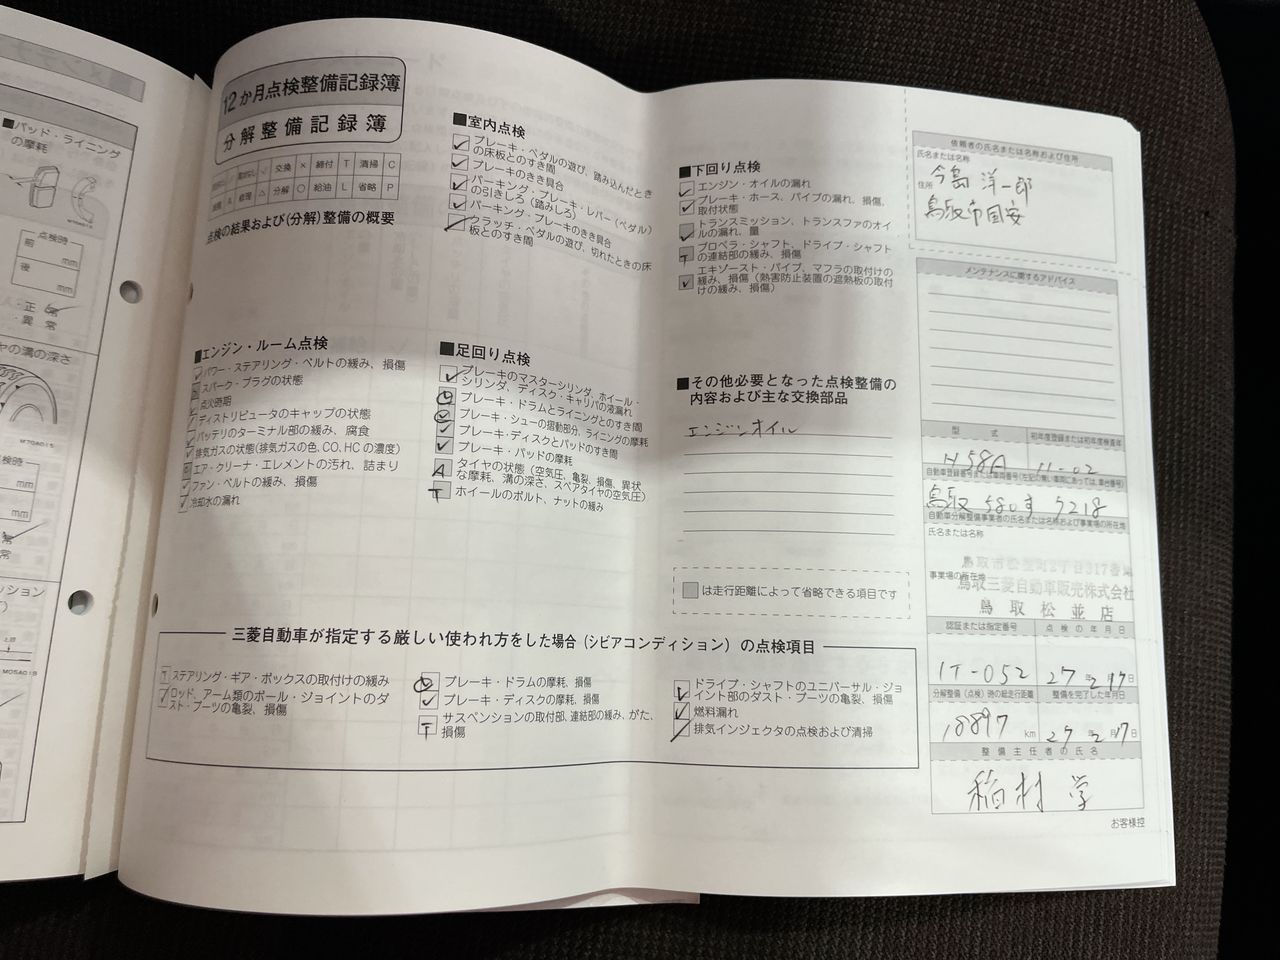 12か月点検整備記録簿
分解整備記録簿
交換 × 締付 T 清掃 C
A 修理 △ 分解 ○ 給油 L 省略 P
点検の結果および(分解)整備の概要
■パッド・ライニングの摩耗
点検時
前 mm
後 mm
・正常
・異常
の溝の深さ
M7GA015
検時
mm
mm
M05A019
■エンジン・ルーム点検
パワー・ステアリング・ベルトの緩み、損傷
スパーク・プラグの状態
点火時期
ディストリビュータのキャップの状態
バッテリのターミナル部の緩み、腐食
排気ガスの状態(排気ガスの色、CO、HCの濃度)
エア・クリーナ・エレメントの汚れ、詰まり
ファン・ベルトの緩み、損傷
冷却水の漏れ
■室内点検
ブレーキ・ペダルの遊び、踏み込んだとき
の床板とのすき間
ブレーキのきき具合
パーキング・ブレーキ・レバー(ペダル)
の引きしろ(踏みしろ)
パーキング・ブレーキのきき具合
クラッチ・ペダルの遊び、切れたときの床
板とのすき間
■足回り点検
ブレーキのマスターシリンダ、ホイール・
シリンダ、ディスク・キャリパの液漏れ
ブレーキ・ドラムとライニングとのすき間
ブレーキ・シューの摺動部分、ライニングの摩耗
ブレーキ・ディスクとパッドのすき間
ブレーキ・パッドの摩耗
A タイヤの状態(空気圧、亀裂、損傷、異状
な摩耗、溝の深さ、スペアタイヤの空気圧)
T ホイールのボルト、ナットの緩み
■下回り点検
エンジン・オイルの漏れ
ブレーキ・ホース、パイプの漏れ、損傷、
取付状態
トランスミッション、トランスファのオイ
ルの漏れ、量
T プロペラ・シャフト、ドライブ・シャフト
の連結部の緩み、損傷
エキゾースト・パイプ、マフラの取付けの
緩み、損傷(熱害防止装置の遮熱板の取付
けの緩み、損傷)
■その他必要となった点検整備の
内容および主な交換部品
エンジンオイル
は走行距離によって省略できる項目です
三菱自動車が指定する厳しい使われ方をした場合(シビアコンディション)の点検項目
T ステアリング・ギア・ボックスの取付けの緩み
ロッド、アーム類のボール・ジョイントのダ
スト・ブーツの亀裂、損傷
ブレーキ・ドラムの摩耗、損傷
ブレーキ・ディスクの摩耗、損傷
T サスペンションの取付部、連結部の緩み、がた、
損傷
ドライブ・シャフトのユニバーサル・ジョ
イント部のダスト・ブーツの亀裂、損傷
燃料漏れ
排気インジェクタの点検および清掃
依頼者の氏名または名称および住所
氏名または名称
今島 洋一郎
住所
鳥取市国安
メンテナンスに関するアドバイス
型式 初年度登録または初年度検査年
H58A 11-02
自動車登録番号または車両番号(左記の無い車両にあっては、車台番号)
鳥取 580す 7218
自動車分解整備事業者の氏名または名称および事業場の所在地
氏名または名称
鳥取市松並町2丁目317番地
事業場の所在地
鳥取三菱自動車販売株式会社
鳥取松並店
認証または指定番号 点検の年月日
1T-052 27年2月17日
分解整備(点検)時の総走行距離 整備を完了した年月日
18897 km 27年2月17日
整備主任者の氏名
稲村 学
お客様控